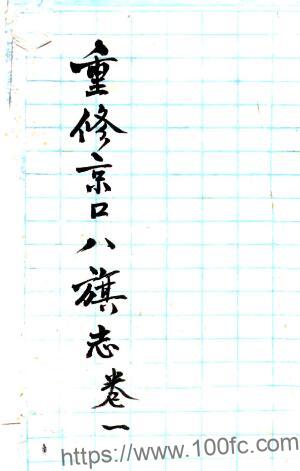 重修京口八旗志卷一
https://www.100fc.com